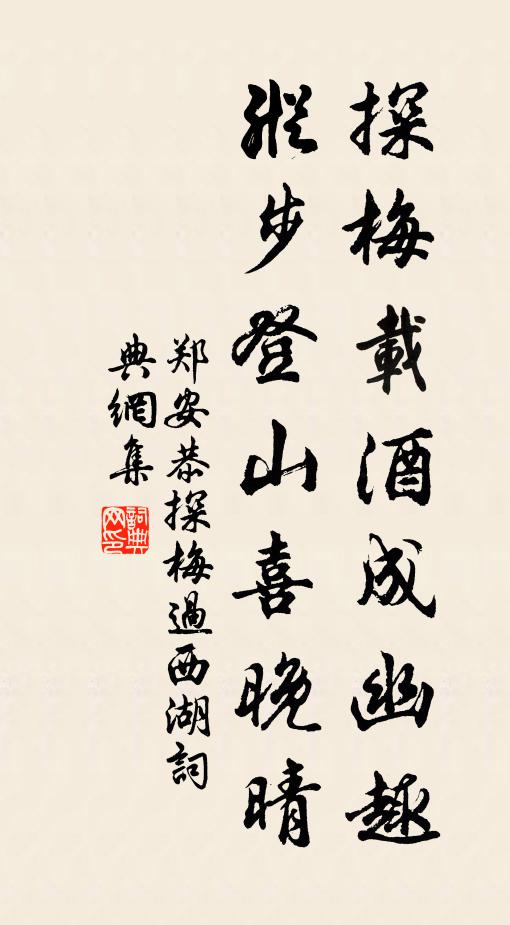 探梅載酒成幽趣
縱步登山喜晚晴
郑安恭探梅過西湖詞
典網集
詞典网印